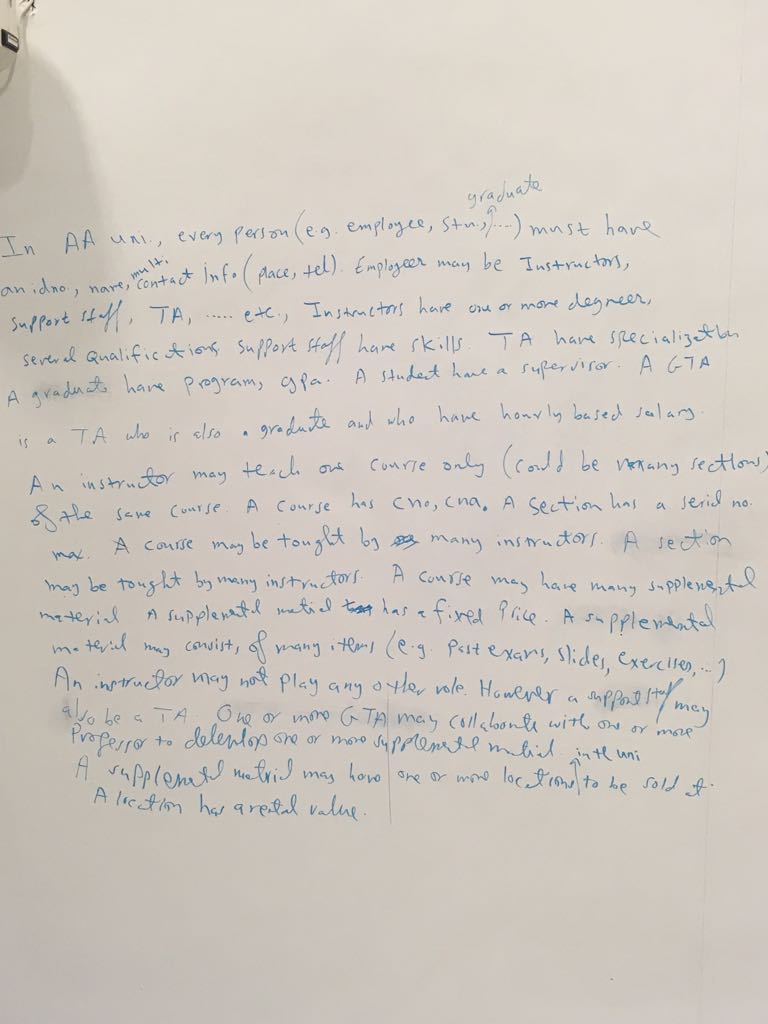 graduate
In AA uni., every person (e.g. employee, stu., ....) must have
multi.
an idno., name, contact info (place, tel). Employees may be Instructors,
support staff, TA, ..... etc., Instructors have one or more degrees,
several Qualifications support staff have skills. TA have specialization
A graduate have program, gpa. A student have a supervisor. A GTA
is a TA who is also a graduate and who have hourly based salary.
An instructor may teach one course only (could be many sections)
of the same course. A course has cno, cna. A section has a serial no.
max. A course may be tought by many instructors. A section
may be tought by many instructors. A course may have many supplemental
material A supplemental material has a fixed Price. A supplemental
material may consist, of many items (e.g. past exams, slides, exercises, ..)
An instructor may not play any other role. However a support staff may
also be a TA. One or more GTA may collaborate with one or more
Professor to delelop one or more supplemental material. in the uni
A supplemental material may have one or more locations to be sold at.
A location has a rental value.